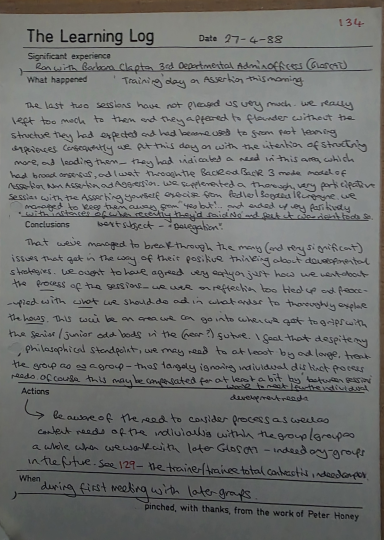 134
The Learning Log Date 27-4-88
Significant experience
Ran with Barbara Clapton 3rd Departmental Admin Officers (GLOSCAT)
What happened 'Training' day on Assertion this morning
The last two sessions have not pleased us very much. We really
left too much to them and they appeared to flounder without the
structure they had expected and had become used to from past learning
experiences. Consequently we put this day on with the intention of structuring
more, and leading them – they had indicated a need in this area, which
had broad consensus, and I went through the Back and Back 3 mode model of
Assertion Non Assertion and Aggression. We supplemented a thorough, very participative
session with the Asserting yourself exercise from
managed to keep them away from 'yes but'... and ended up very positively
with instances of when recently they'd said No and felt it was right to do so.
Conclusions Next subject – "Delegation"
That we've managed to break through the many (and very significant)
issues that get in the way of their positive thinking about developmental
strategies. We ought to have agreed very early on just how we went about
the process of the sessions – we were on reflection too tied up and preocc-
-upied with what we should do and in what order to thoroughly explore
the hows. This will be an area we can go into when we get to grips with
the senior/junior odd bods in the (near?) future. I feel that despite my
philosophical standpoint, we may need to at least by and large, treat
the group as a group – thus largely ignoring individual distinct process
needs. Of course this may be compensated for at least a bit by 'between session'
work to meet further individual
development needs
Actions
Be aware of the need to consider process as well as
content needs of the individuals within the group/group as
a whole when we work with later GLOSCAT – indeed any – groups
in the future. See 129 – the trainer/trainee total contact is, indeed
When
during first meeting with later groups.
pinched, with thanks, from the work of Peter Honey